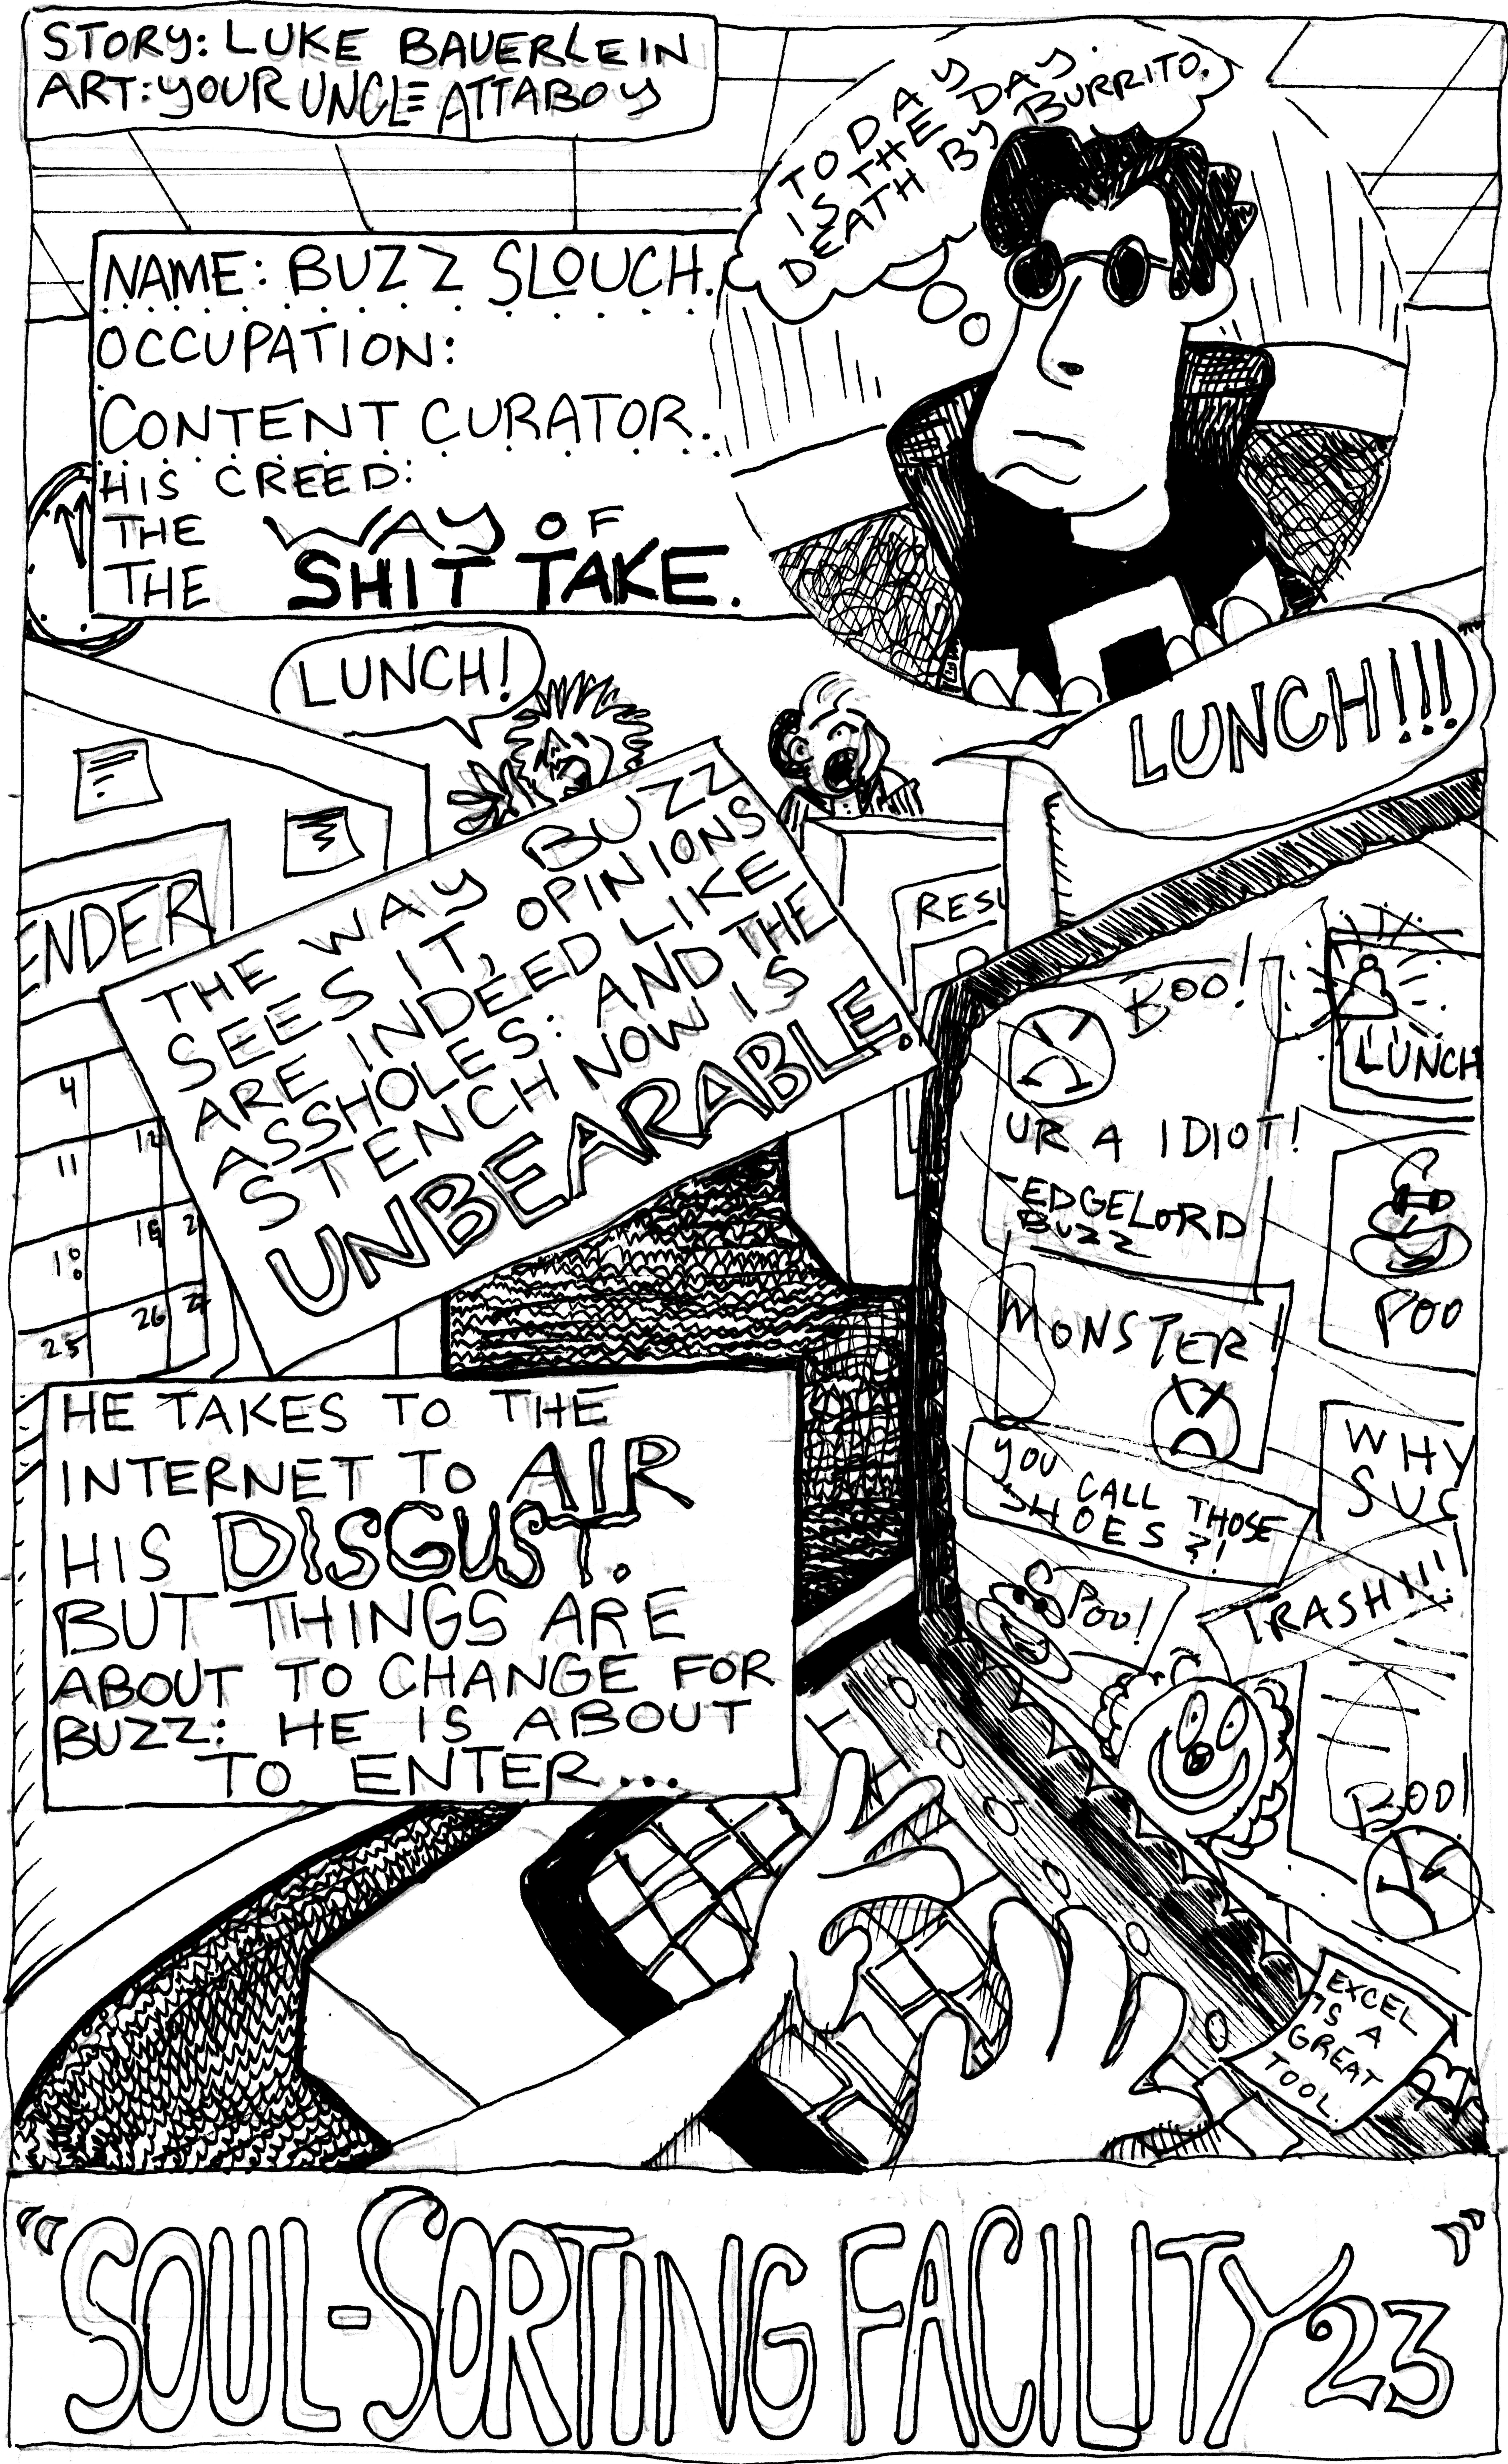 STORY: LUKE BAUERLEIN
ART: YOUR UNCLE ATTABOY
TODAY
IS THE DAY.
DEATH BY BURRITO.
NAME: BUZZ SLOUCH.
OCCUPATION:
CONTENT CURATOR.
HIS CREED:
THE WAY OF
THE SHIT TAKE.
LUNCH!
LUNCH!!!
THE WAY BUZZ
SEES IT, OPINIONS
ARE INDEED LIKE
ASSHOLES: AND THE
STENCH NOW IS
UNBEARABLE.
ENDER
4
11 12
18 19 2
25 26 27
RESU
BOO!
UR A IDIOT!
EDGELORD
BUZZ
LUNCH
POO
MONSTER!
YOU CALL THOSE
SHOES?!
WHY
SUC
POO!
TRASH!!!
BOO!
EXCEL
IS A
GREAT
TOOL.
HE TAKES TO THE
INTERNET TO AIR
HIS DISGUST.
BUT THINGS ARE
ABOUT TO CHANGE FOR
BUZZ: HE IS ABOUT
TO ENTER...
"SOUL-SORTING FACILITY 23"